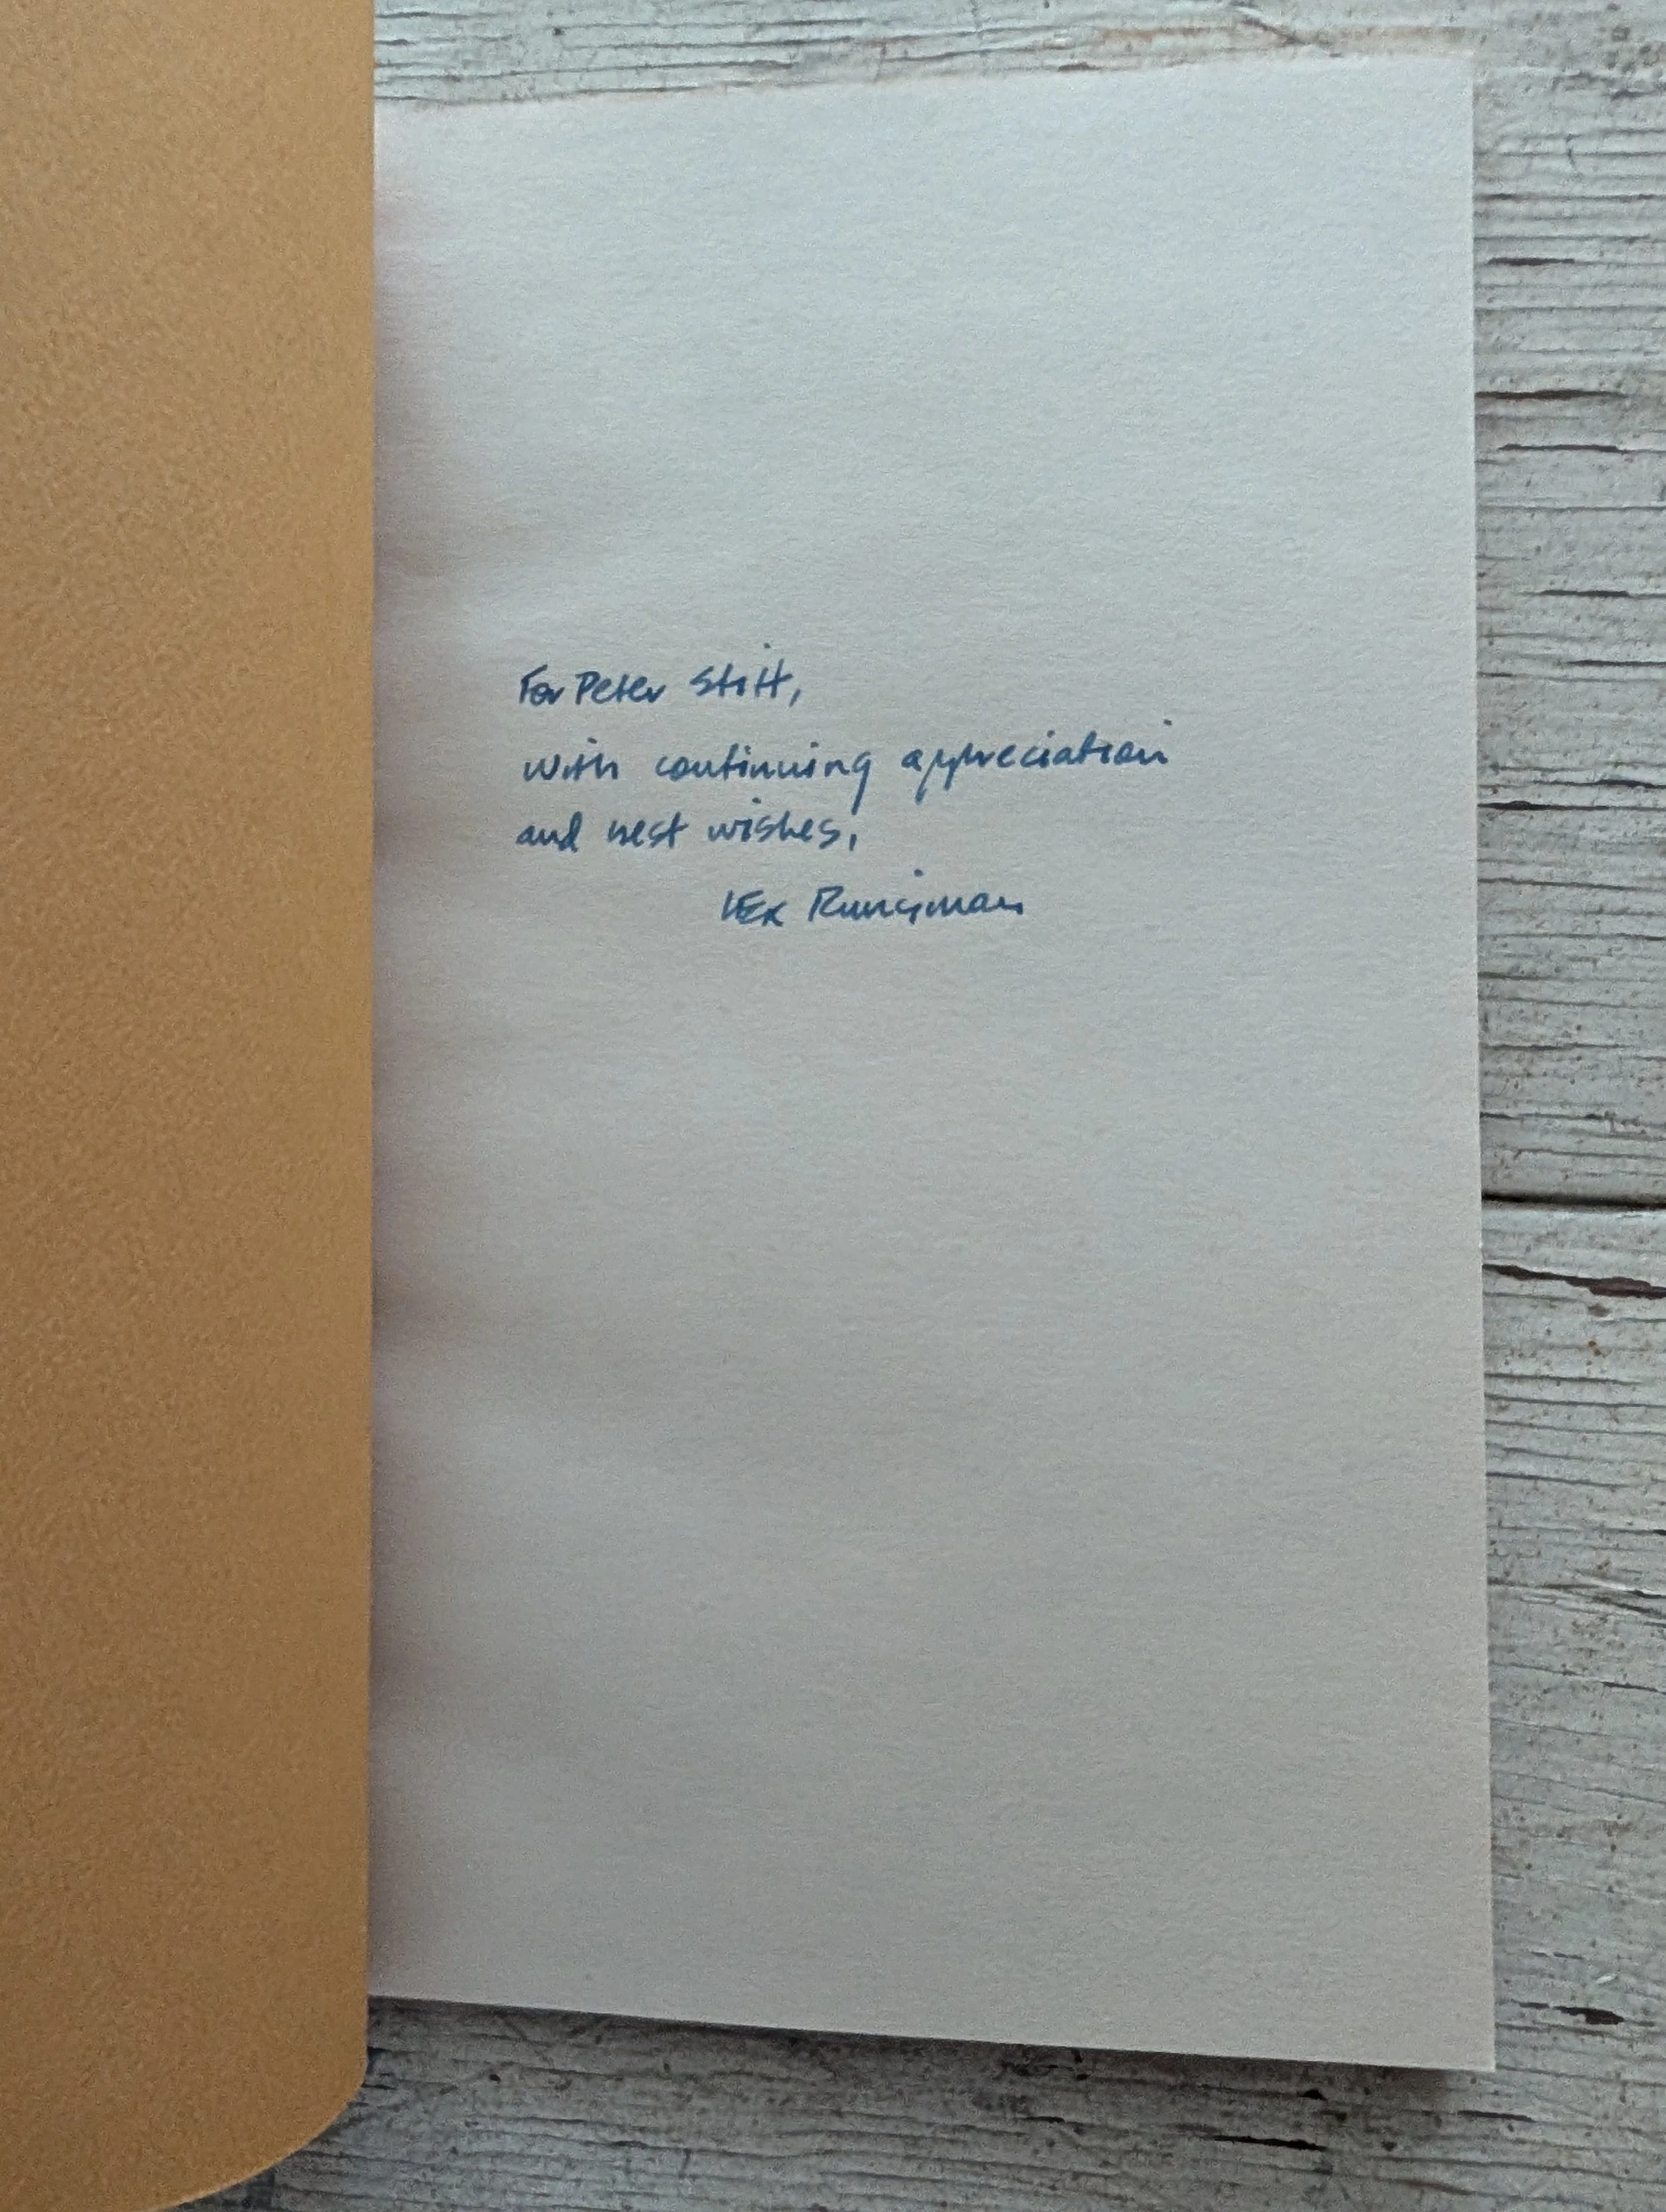 For Peter Stitt,
with continuing appreciation
and best wishes,
Lex Runciman